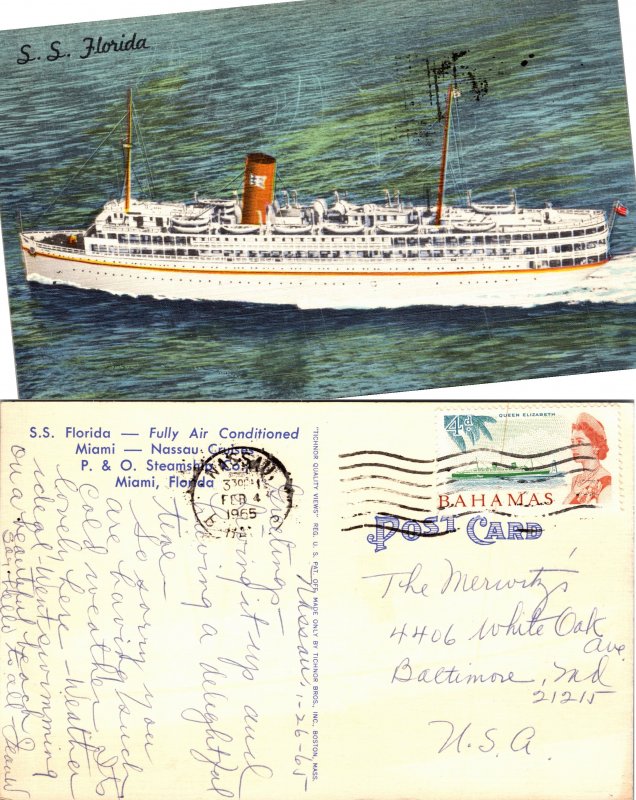 S. S. Florida
S.S. Florida — Fully Air Conditioned
Miami — Nassau Cruises
P. & O. Steamship Co.
Miami, Florida
NASSAU
FEB 4
1965
"TICHNOR QUALITY VIEWS" REG. U. S. PAT. OFF. MADE ONLY BY TICHNOR BROS., INC., BOSTON, MASS.
QUEEN ELIZABETH
4d.
BAHAMAS
POST CARD
Nassau, 1-26-65
Greetings -
Living it up and
having a delightful
time -
So sorry you
are having such
cold weather. It's
lovely here - Weather
ideal. Went swimming
on a beautiful beach
Say hello to all -
The Merwitz's
4406 White Oak
Ave.
Baltimore, Md
21215
U.S.A.